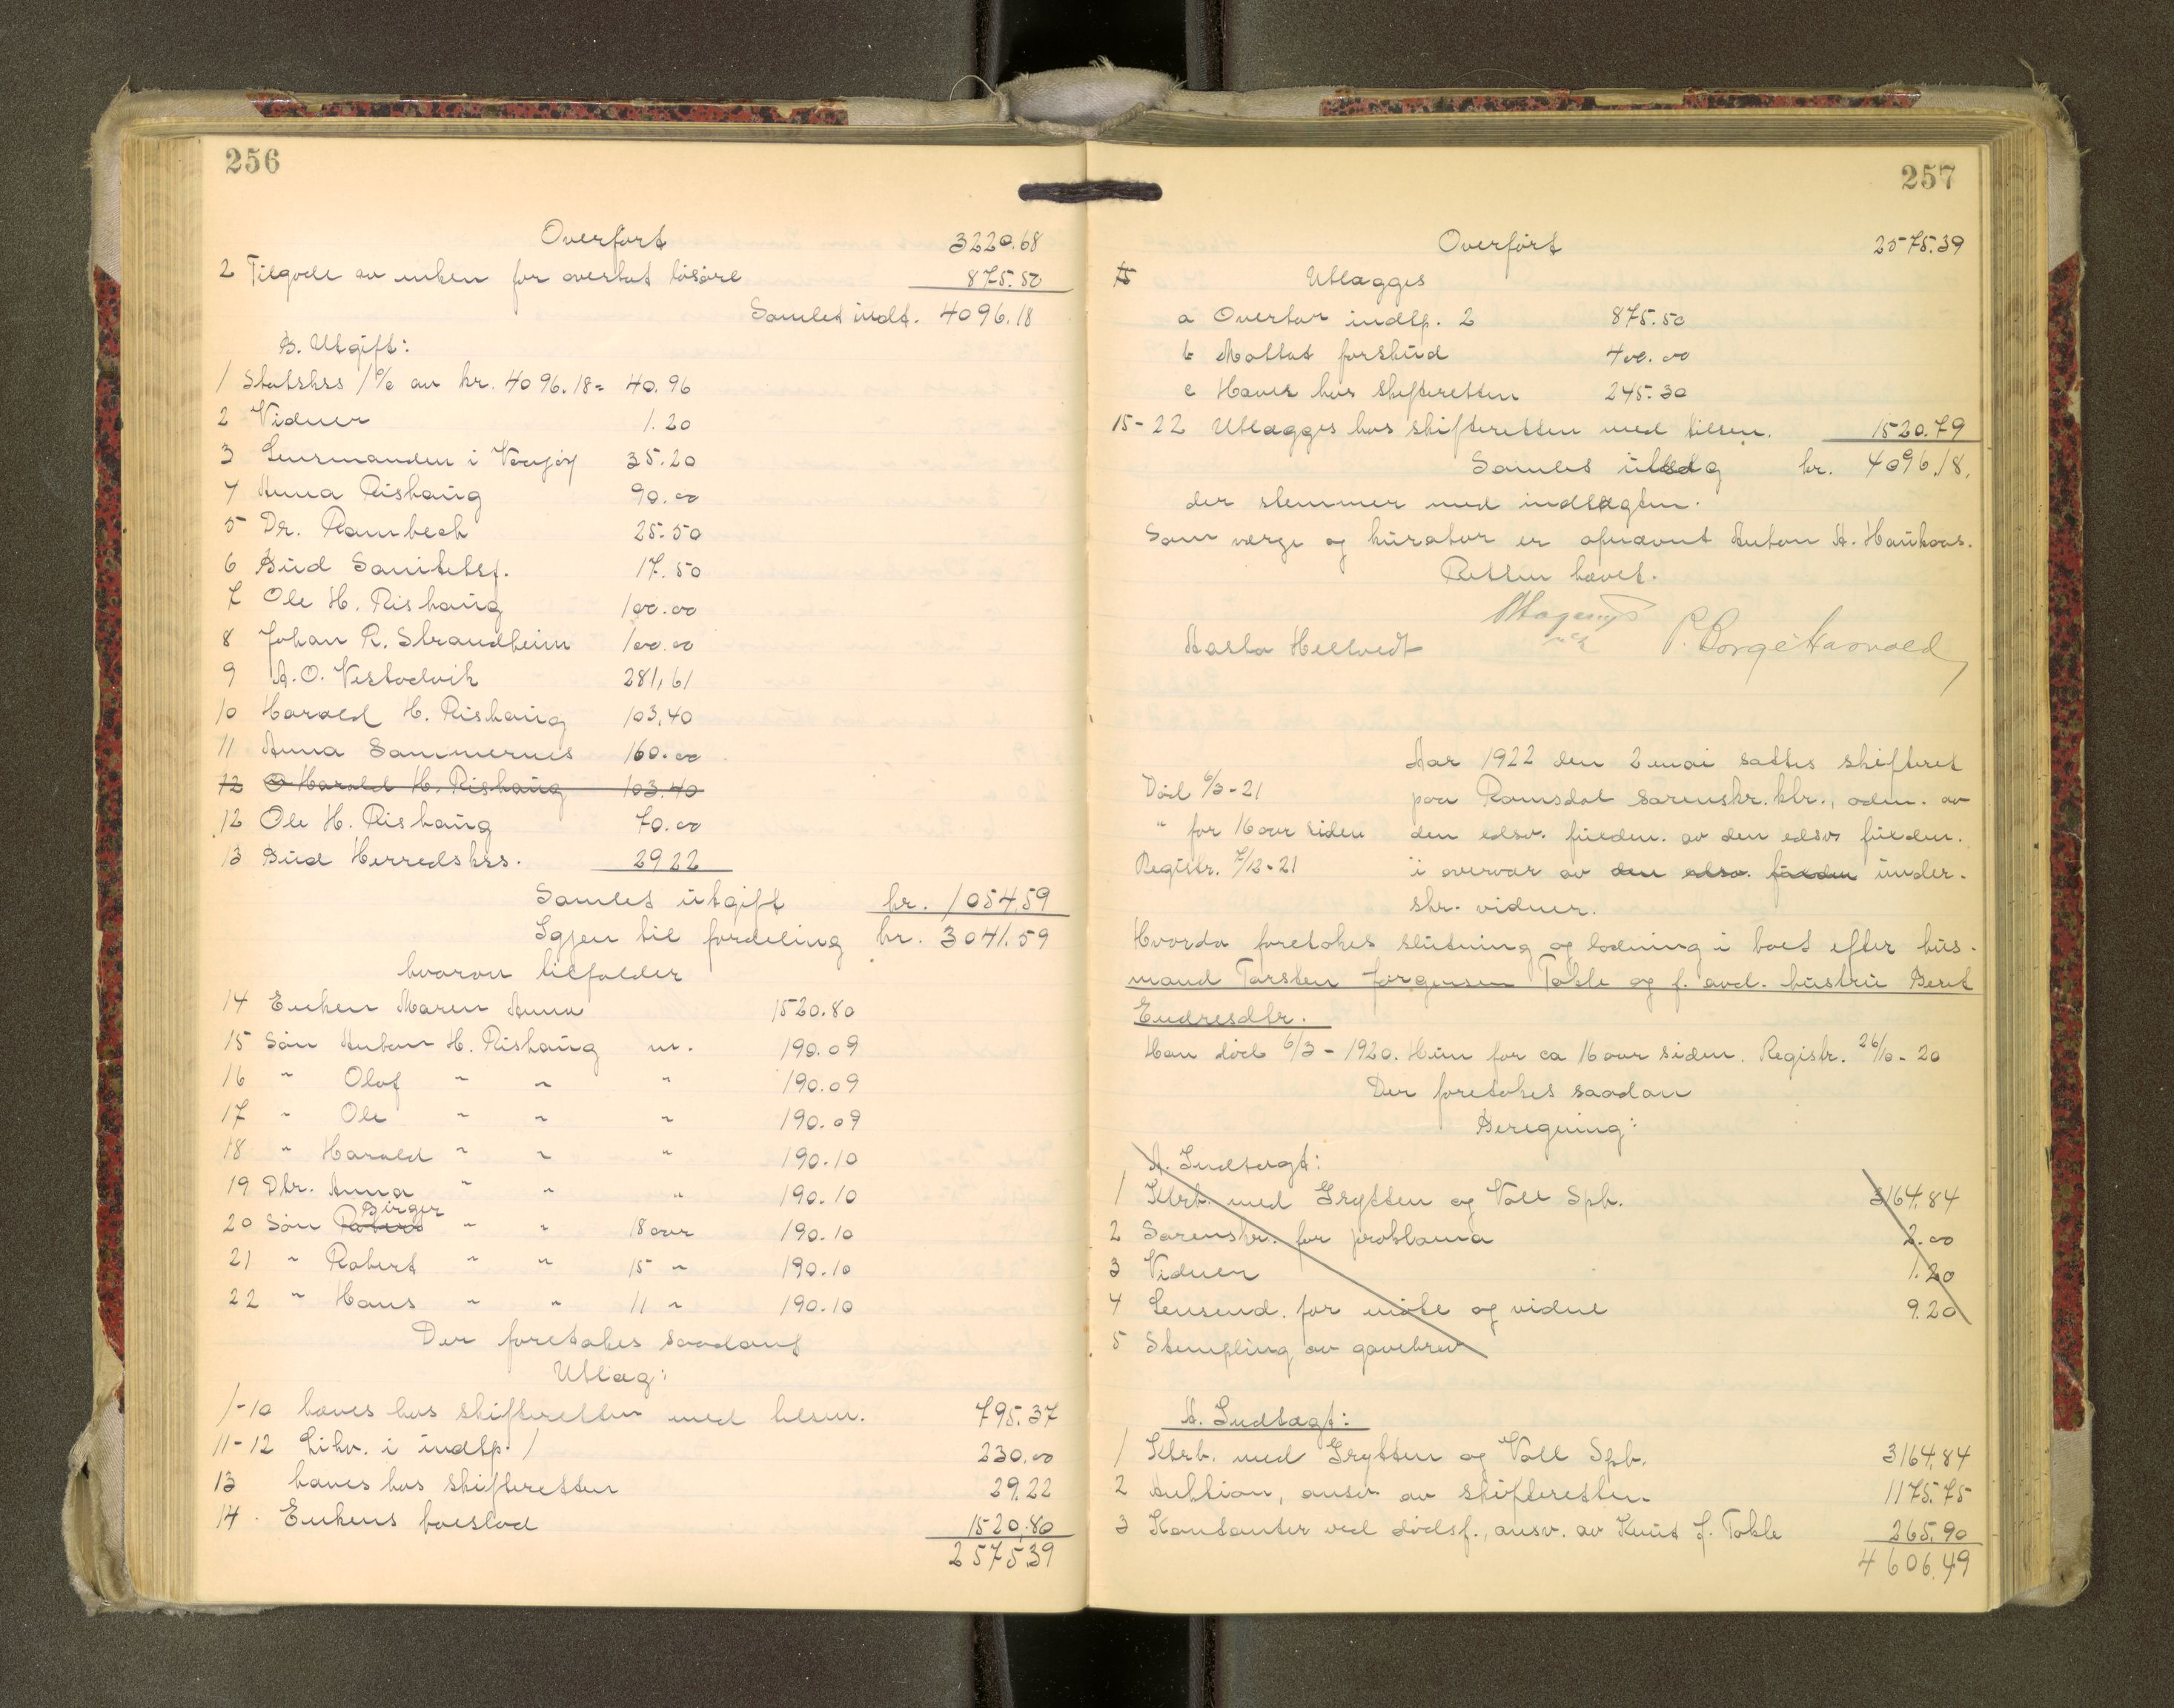 256
Overført 3220.68
2 Tilgode av enken for overtat løsøre 875.50
Samlet indt. 4096.18
B. Utgift:
1 Statskss 1% av kr. 4096.18= 40.96
2 Vidner 1.20
3 Lensmanden i 35.20
4 Anna Rishaug 90.00
5 Dr. Rambech 25.50
6 Bud Sanitetsf. 17.50
7 Ole H. Rishaug 100.00
8 Johan R. Strandheim 100.00
9 A.O. Vestadvik 281,61
10 Harald H. Rishaug 103,40
11 Anna Sammernes 160.00
12 O Harald H. Rishaug 103.40
12 Ole H. Rishaug 70.00
13 Bud Herredskss. 29 22
Samlet utgift kr. 1054,59
Igjen til fordeling kr. 3041.59
hvorav tilfalder
14 Enken Maren Anna 1520.80
15 Søn Anton H. Rishaug m. 190.09
16 " Olaf " " " 190.09
17 " Ole " " " 190.09
18 " Harald " " " 190.10
19 Dtr. Anna " " " 190.10
20 Søn Robert Birger " " 18 aar 190.10
21 " Robert " " 15 " 190.10
22 " Hans " " 11 " 190.10
Der foretokes saadant
Utlæg:
1-10 hæves hos skifteretten med tilsm. 795.37
11-12 Likv. i indtp. 1 230.00
13 hæves hos skifteretten 29.22
14. Enkens boeslod 1520,80
2575,39
257
Overført 2575.39
15 Utlægges
a Overtar indtp. 2 875.50
b Mottat forskud 400.00
c Hæves hos skifteretten 245.30
15-22 Utlægges hos skifteretten med tilsm. 1520.79
Samlet utlæg kr. 4096,18,
der stemmer med indtægten.
Som verge og kurator er opnævnt Anton A. Haukaas.
Retten hævet.
Aasta Heltvedt P. Borge Aasvold
Aar 1922 den 2 mai sattes skifteret
Død 6/3-21 paa Romsdal sorenskr.ktr., adm. av
" for 16 aar siden den edsv. fuldm. av den edsv fuldm.
Registr. 7/12-21 i overvær av den edsv. fuldm under-
skr. vidner.
Hvorda foretokes slutning og lodning i boet efter hus-
mand Torsten Jørgensen Tokle og f. avd. hustru Beret
Endresdtr.
Han død 6/3-1920. Hun for ca 16 aar siden. Registr. 26/10-20
Der foretokes saadan
Beregning:
A. Indtægt:
1 Ktrb. med Grytten og Voll Spb. 3164,84
2 Sorenskr. for proklama 2.00
3 Vidner 1.20
4 Lensmd. for møte og vidne 9.20
5 Stempling av gavebrev
A. Indtægt:
1 Ktrb. med Grytten og Voll Spb. 3164,84
2 Auktion, ansv. av skifteretten 1175.75
3 Kontanter ved dødsf., ansv. av Knut J. Tokle 265,90
4606.49